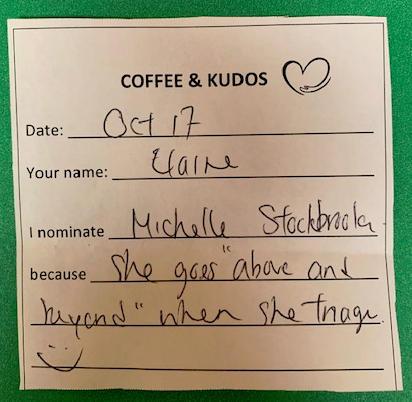 COFFEE & KUDOS
Date: Oct 17
Your name: Elaine
I nominate Michelle Stockbrook
because She goes "above and
beyond" when she triage.